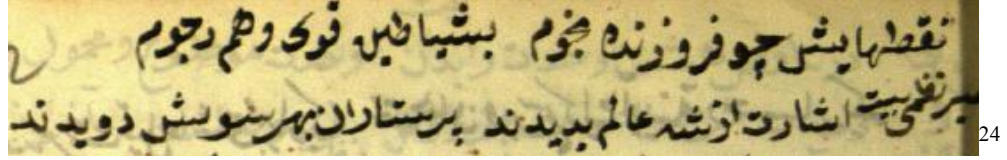 نقطهایش چو فروزنده نجوم بشیاطین قوی وهم رجوم
میر نظمی بیت اشارت از شه عالم بدیدند پرستاران بهر سویش دویدند
24